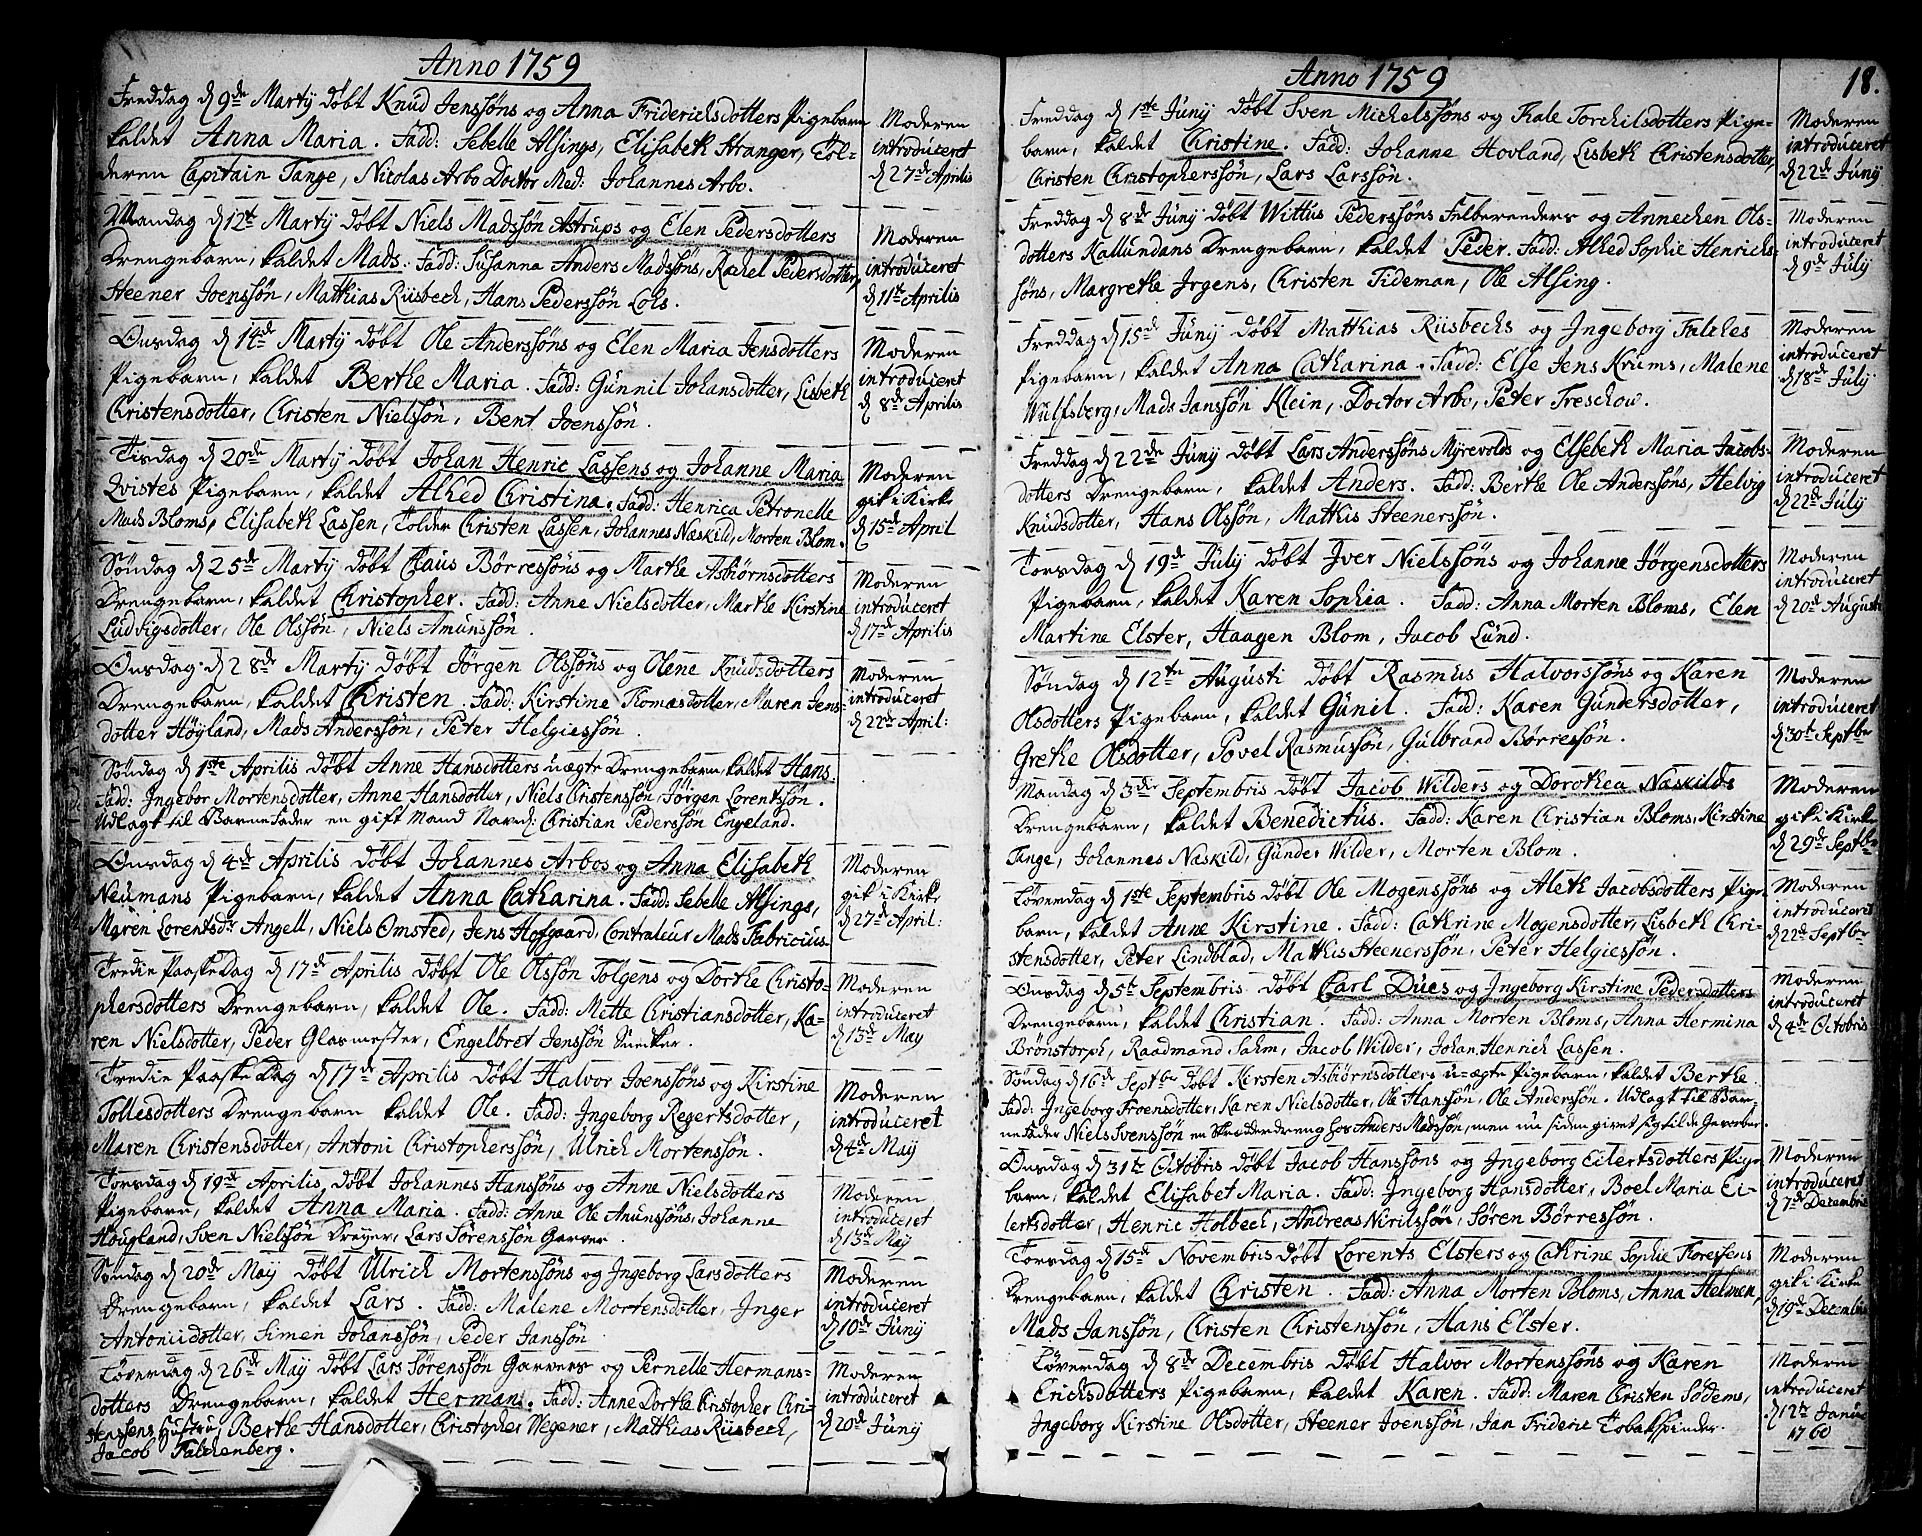 Anno 1759
Freddag d 9de Martÿ døbt Knud Jenssøns og Anna Friderichsdotters Pigebarn
kaldet Anna Maria. Fadd: Sebelle Alsings, Elisabeth Stranger, Tol-
deren Capitain Tange, Nicolas Arbo Doctor Med: Johannes Arbo.
Moderen
introduceret
d 27de Aprilis
Mandag d 12te Martÿ døbt Niels Madssøn Astrups og Elen Pedersdotters
Drengebarn, kaldet Mads. Fadd: Susanna Anders Madssøns, Rachel Pedersdotter,
Steener Joenssøn, Matthias Riisbech, Hans Pederssøn Lohs.
Moderen
introduceret
d 11te Aprilis
Onsdag d 14de Martÿ døbt Ole Anderssøns og Elen Maria Jensdotters
Pigebarn, kaldet Berthe Maria. Fadd: Gunnil Johansdotter, Lisbeth
Christensdotter, Christen Nielssøn, Bent Joenssøn.
Moderen
introduceret
d 8de Aprilis
Tisdag d 20de Martÿ døbt Johan Henric Lassens og Johanne Maria
Qvistes Pigebarn, kaldet Alhed Christina. Fadd: Henrica Petronelle
Mads Bloms, Elisabeth Lassen, Tolder Christen Lassen, Johannes Næskild, Morten Blom.
Moderen
gik i Kirke
d 15de April
Søndag d 25de Martÿ døbt Claus Børressøns og Marthe Asbiørnsdotters
Drengebarn, kaldet Christopher. Fadd: Anne Nielsdotter, Marthe Kirstine
Ludvigsdotter, Ole Olssøn, Niels Amunssøn.
Moderen
introduceret
d 17de Aprilis
Onsdag d 28de Martÿ døbt Jørgen Olssøns og Olene Knudsdotters
Drengebarn, kaldet Christen. Fadd: Kirstine Thomasdotter, Maren Jens-
dotter Høyland, Mads Anderssøn, Peter Helgiessøn.
Moderen
introduceret
d 22de April:
Søndag d 1ste Aprilis døbt Anne Hansdotters uægte Drengebarn, kaldet Hans.
Fadd: Ingebor Mortensdotter, Anne Hansdotter, Niels Cristenssøn, Jørgen Lorentssøn.
Udlagt til Barnefader en gift Mand Navnl: Christian Pederssøn Engeland.
Onsdag d 4de Aprilis døbt Johannes Arbos og Anna Elisabeth
Neumans Pigebarn, kaldet Anna Catharina. Fadd: Sebelle Alsings,
Maren Lorentsdr Angell, Niels Omsted, Jens Hofgaard, Contraleur Mads Fabricius
Moderen
gik i Kirke
d 27de April:
Tredie Paaske Dag d 17de Aprilis døbt Ole Olssøn Solgens og Dorthe Christo-
phersdotters Drengebarn, kaldet Ole. Fadd: Mette Christiansdotter, Ka-
ren Nielsdotter, Peder Glasmester, Engelbret Jenssøn Snecker.
Moderen
introduceret
d 13de May
Tredie Paaske Dag d 17de Aprilis døbt Halvor Joenssøns og Kirstine
Tollesdotters Drengebarn kaldet Ole. Fadd: Ingeborg Regertsdotter,
Maren Christensdotter, Antoni Christopherssøn, Ulrich Mortenssøn.
Moderen
introduceret
d 4de Maÿ
Torsdag d 19de Aprilis døbt Johannes Hanssøns og Anne Nielsdotters
Pigebarn, kaldet Anna Maria. Fadd: Anne Ole Amunssøns, Johanne
Hougland, Sven Nielssøn Dreyer, Lars Sørenssøn Garver.
Moderen
introduceret
d 13de Maÿ
Søndag d 20de Maÿ døbt Ulrich Mortenssøns og Ingeborg Larsdotters
Drengebarn, kaldet Lars. Fadd: Malene Mortensdotter, Inger
Antonidotter, Simen Johanssøn, Peder Janssøn.
Moderen
introduceret
d 10de Junÿ
Løverdag d 26de Maÿ døbt Lars Sørenssøn Garvers og Pernelle Hermans-
dotters Drengebarn, kaldet Herman. Fadd: Anne Dorthe Christopher Chri-
stenssens Hustru, Berthe Hansdotter, Christopher Wegener, Matthias Riisbech,
Jacob Falckenberg.
Moderen
introduceret
d 20de Junÿ
Anno 1759
18.
Freddag d 1ste Junÿ døbt Sven Michelssøns og Kale Torchilsdotters Pige-
barn, kaldet Christine. Fadd: Johanne Hovland, Lisbeth Christensdotter,
Christen Christopherssøn, Lars Larssøn.
Moderen
introduceret
d 22de Junÿ
Freddag d 8de Junÿ døbt Wittus Pederssøns Felberenders og Annechen Ols-
dotters Kallundans Drengebarn, kaldet Peder. Fadd: Alhed Sophie Henrichs-
søns, Margrethe Jrgens, Christen Tideman, Ole Alsing.
Moderen
introduceret
d 9de Julÿ
Freddag d 15de Junÿ døbt Matthias Riisbechs og Ingeborg Falches
Pigebarn, kaldet Anna Catharina. Fadd: Else Jens Krums, Malene
Wulfsberg, Mads Janssøn Klein, Doctor Arbo, Peter Treschow.
Moderen
introduceret
d 18de Julÿ
Freddag d 22de Junÿ døbt Lars Anderssøns Myrevolds og Elsebeth Maria Jacobs-
dotters Drengebarn, kaldet Anders. Fadd: Berthe Ole Anderssøns, Helvig
Knudsdotter, Hans Olssøn, Mathis Steenerssøn.
Moderen
introduceret
d 22de Julÿ
Torsdag d 19de Julÿ døbt Jver Nielssøns og Johanne Jørgensdotters
Pigebarn, kaldet Karen Sophia. Fadd: Anna Morten Bloms, Elen
Martine Elster, Haagen Blom, Jacob Lund.
Moderen
introduceret
d 20de Augusti
Søndag d 12te Augusti døbt Rasmus Halvorssøns og Karen
Olsdotters Pigebarn, kaldet Gunil. Fadd: Karen Gundersdotter,
Grethe Olsdotter, Povel Rasmussøn, Gulbrand Børressøn.
Moderen
introduceret
d 30te Septbr
Mandag d 3die Septembris døbt Jacob Wilders og Dorothea Næskilds
Drengebarn, kaldet Benedictus. Fadd: Karen Christian Bloms, Kirstine
Tange, Johannes Næskild, Gunder Wilder, Morten Blom.
Moderen
gik i Kirke
d 29de Septbr
Løverdag d 1ste Septembris døbt Ole Mogenssøns og Aleth Jacobsdotters Pige-
barn, kaldet Anne Kirstine. Fadd: Cathrine Mogensdotter, Lisbeth Chri-
stensdotter, Peter Lindblad, Matthis Steenerssøn, Peter Helgiessøn.
Moderen
introduceret
d 22de Septbr
Onsdag d 5te Septembris døbt Carl Dues og Ingeborg Kirstine Pedersdotters
Drengebarn, kaldet Christian. Fadd: Anna Morten Bloms, Anna Hermina
Brønstorph, Raadmand Sahm, Jacob Wilder, Johan Henrich Lassen.
Moderen
introduceret
d 4de Octobris
Søndag d 16de Septbr døbt Kirsten Asbiørnsdotters u-ægte Pigebarn, kaldet Berthe.
Fadd: Ingeborg Froensdotter, Karen Nielsdotter, Ole Hanssøn, Ole Anderssøn. Udlagt til Bar-
nefader Niels Svenssøn en Skrædderdreng hos Anders Madssøn, men nu siden givet sig til de Gevorbne.
Onsdag d 31te Octobris døbt Jacob Hanssøns og Ingeborg Eilertsdotters Pige-
barn, kaldet Elisabet Maria. Fadd: Ingeborg Hansdotter, Boel Maria Ei-
lertsdotter, Henric Holbech, Andreas Nirilssøn, Søren Børressøn.
Moderen
introduceret
d 7de Decembris
Torsdag d 15de Novembris døbt Lorents Elsters og Cathrine Sophie Thoresens
Drengebarn, kaldet Christen. Fadd: Anna Morten Bloms, Anna Helmen,
Mads Janssøn, Christen Christenssøn, Hans Elster.
Moderen
gik i Kirke
d 19de Decembris
Løverdag d 8de Decembris døbt Halvor Mortenssøns og Karen
Ericksdotters Pigebarn, kaldet Karen. Fadd: Maren Christen Sødems,
Ingeborg Kirstine Olsdotter, Steener Joenssøn, Jan Frideric Tobakspinder.
Moderen
introduceret
d 12te Janua
1760